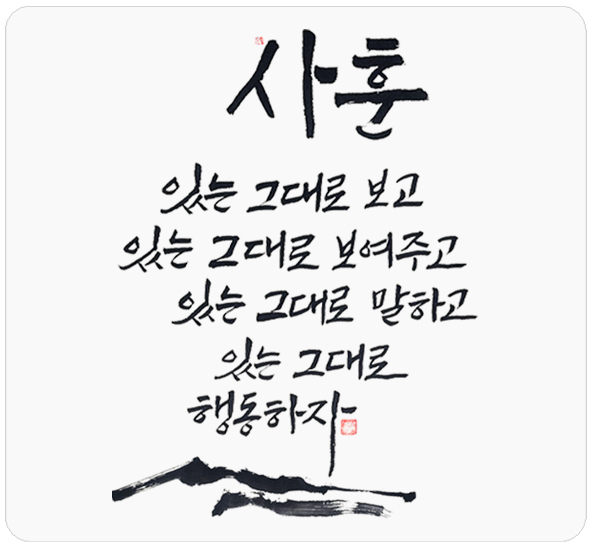 사훈
있는 그대로 보고
있는 그대로 보여주고
있는 그대로 말하고
있는 그대로
행동하자